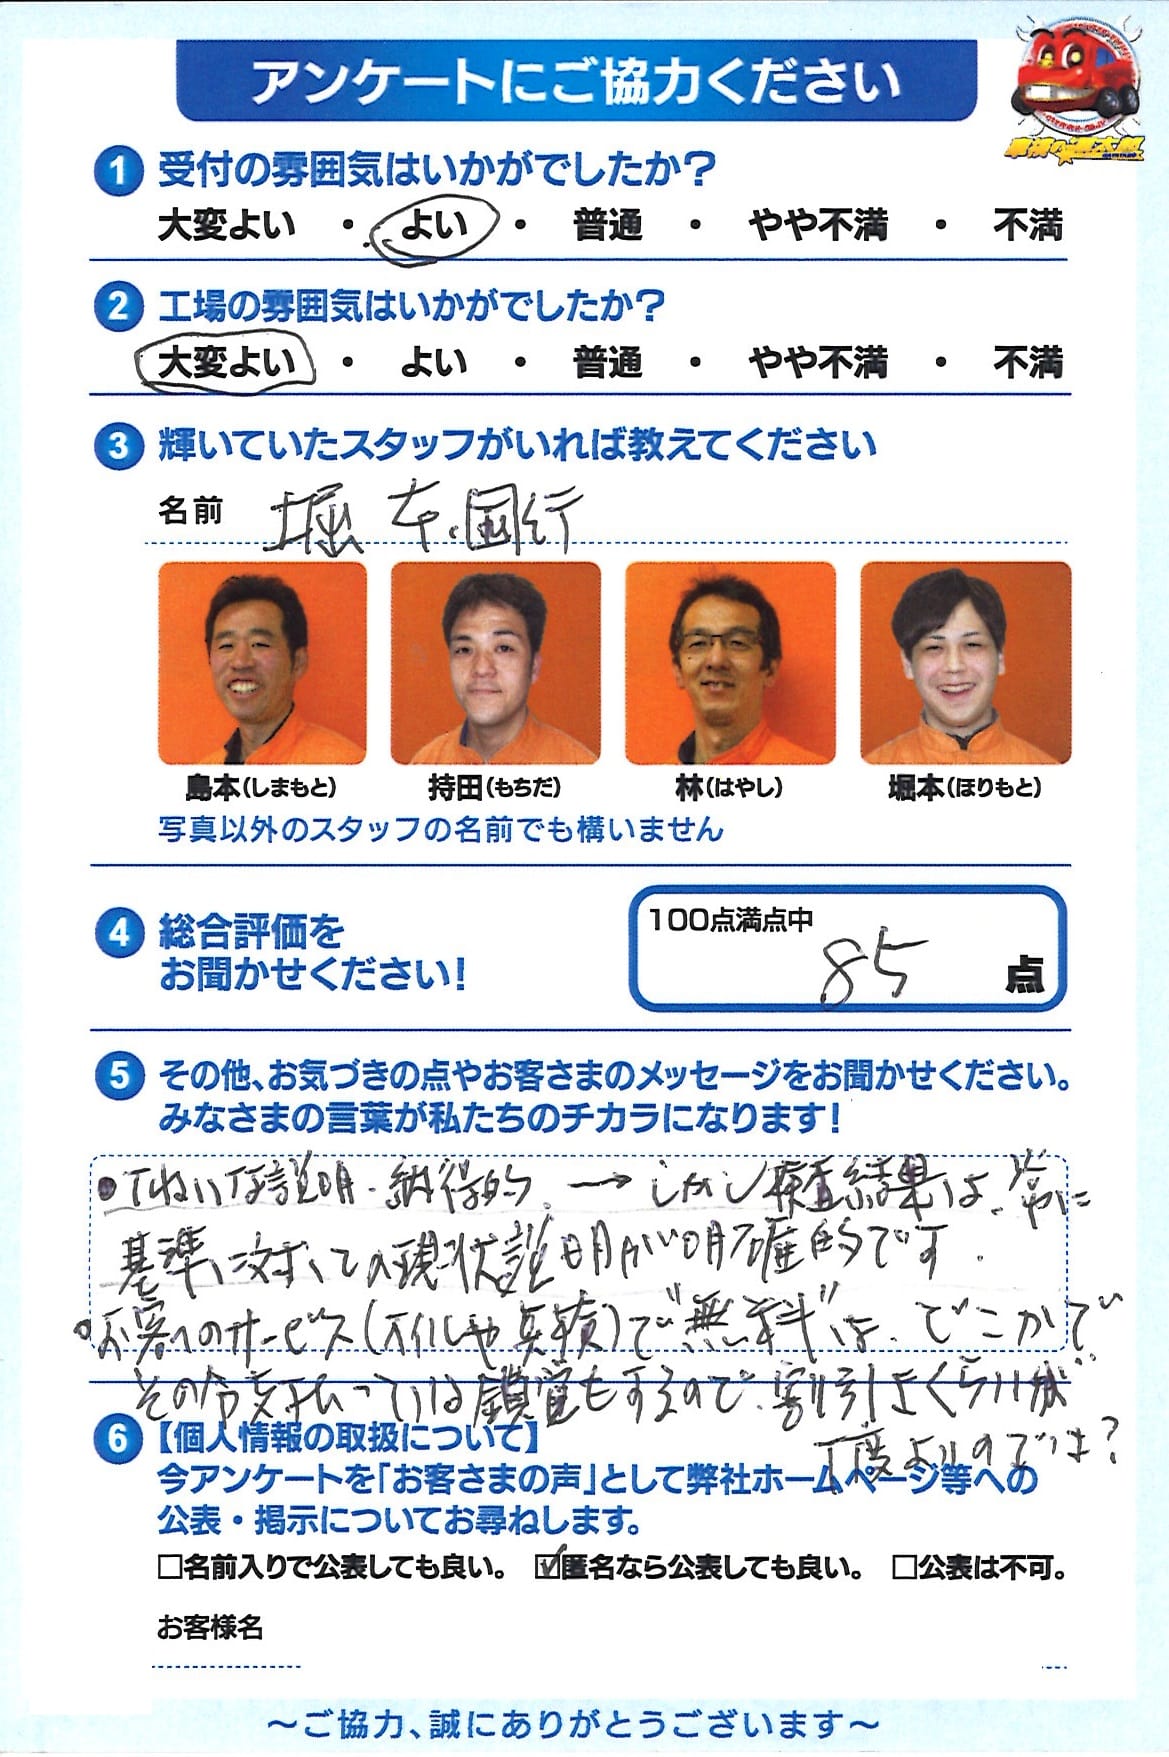 アンケートにご協力ください
車検の速太郎
1 受付の雰囲気はいかがでしたか？
大変よい ・ よい ・ 普通 ・ やや不満 ・ 不満
2 工場の雰囲気はいかがでしたか？
大変よい ・ よい ・ 普通 ・ やや不満 ・ 不満
3 輝いていたスタッフがいれば教えてください
名前 堀本国行
島本(しまもと) 持田(もちだ) 林(はやし) 堀本(ほりもと)
写真以外のスタッフの名前でも構いません
4 総合評価を
お聞かせください！
100点満点中
85 点
5 その他、お気づきの点やお客さまのメッセージをお聞かせください。
みなさまの言葉が私たちのチカラになります！
●ていねいな説明・納得的。→しかし検査結果は、常に
基準に対しての現状説明が明確的です。
○お客へのサービス(オイルや点検)で"無料"は、どこかで
その分支払っている錯覚もするので、割引きくらいが
丁度よいのでは？
6 【個人情報の取扱について】
今アンケートを「お客さまの声」として弊社ホームページ等への
公表・掲示についてお尋ねします。
□名前入りで公表しても良い。 ☑匿名なら公表しても良い。 □公表は不可。
お客様名
～ご協力、誠にありがとうございます～